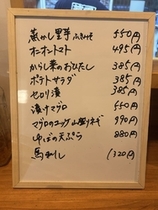 蒸かし里芋 ふきみそ 550円
オニオントマト 495円
からし菜のおひたし 385円
ポテトサラダ 385円
セロリ漬 385円
漬けマグロ 550円
マグロのユッケ 990円
ゆばの天ぷら 880円
馬刺し 1320円